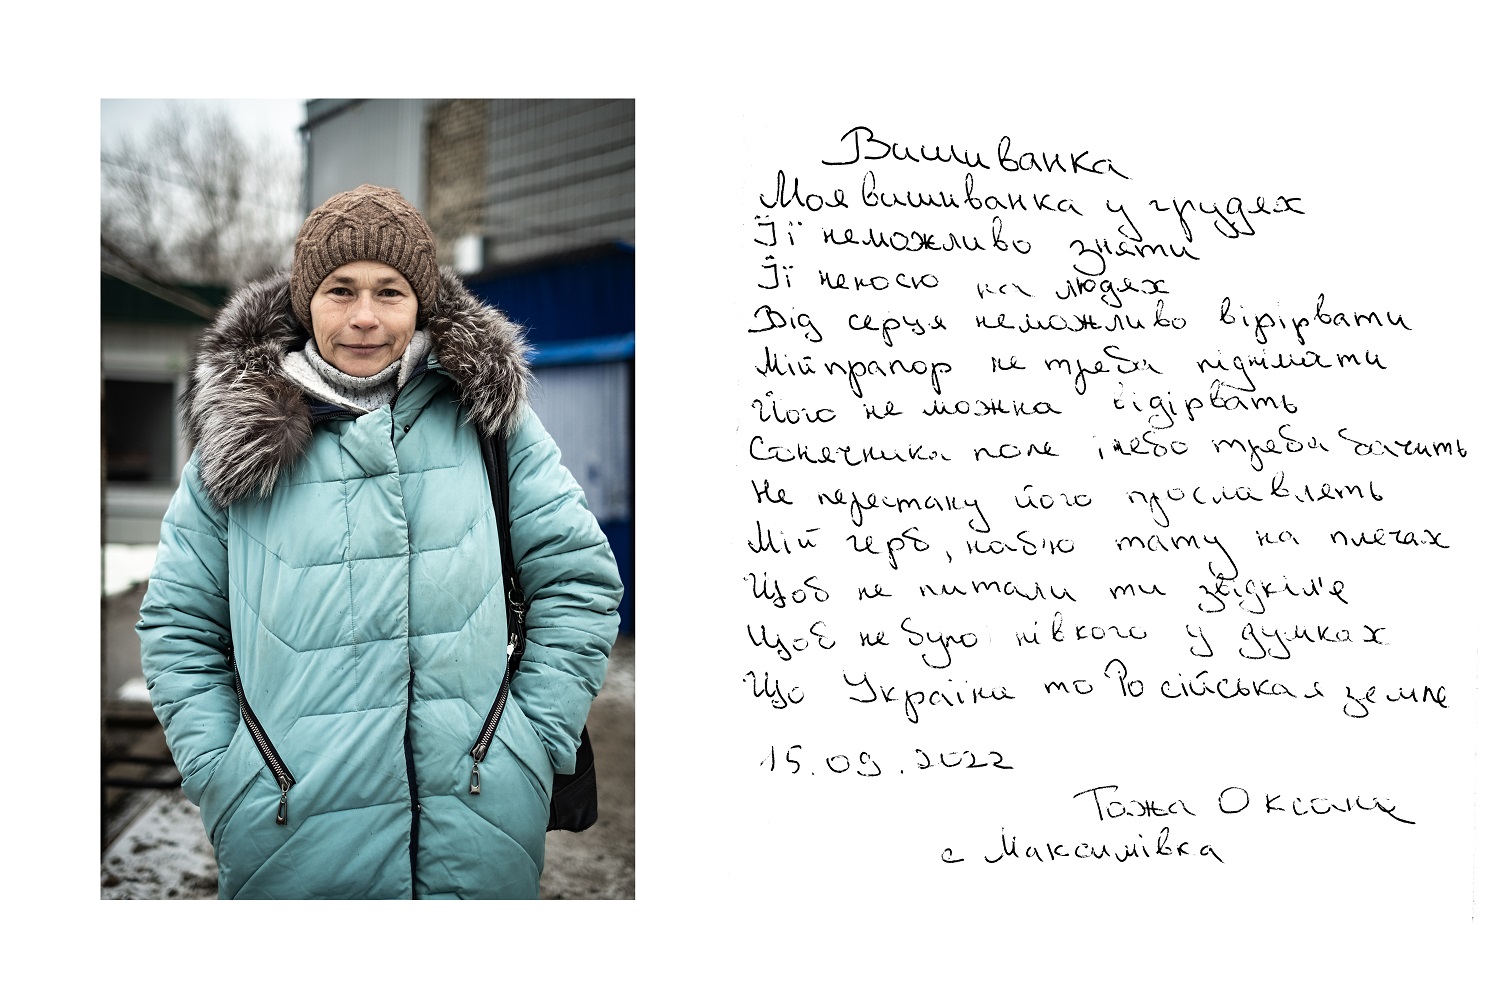 Вишиванка
Моя вишиванка у грудях
Її неможливо зняти
Її неносю на людях
Від серця неможливо вірірвати
Мій прапор не треба піднімати
Його не можна відірвать
Сонячника поле і небо треба бачить
Не перестану його прославлять
Мій герб, наб'ю тату на плечах
Щоб не питали ти звідкіл'я
Щоб не було нівкого у думках
Що Україна то Російськая земля
15.09.2022
Тожа Оксана
с Максимівка